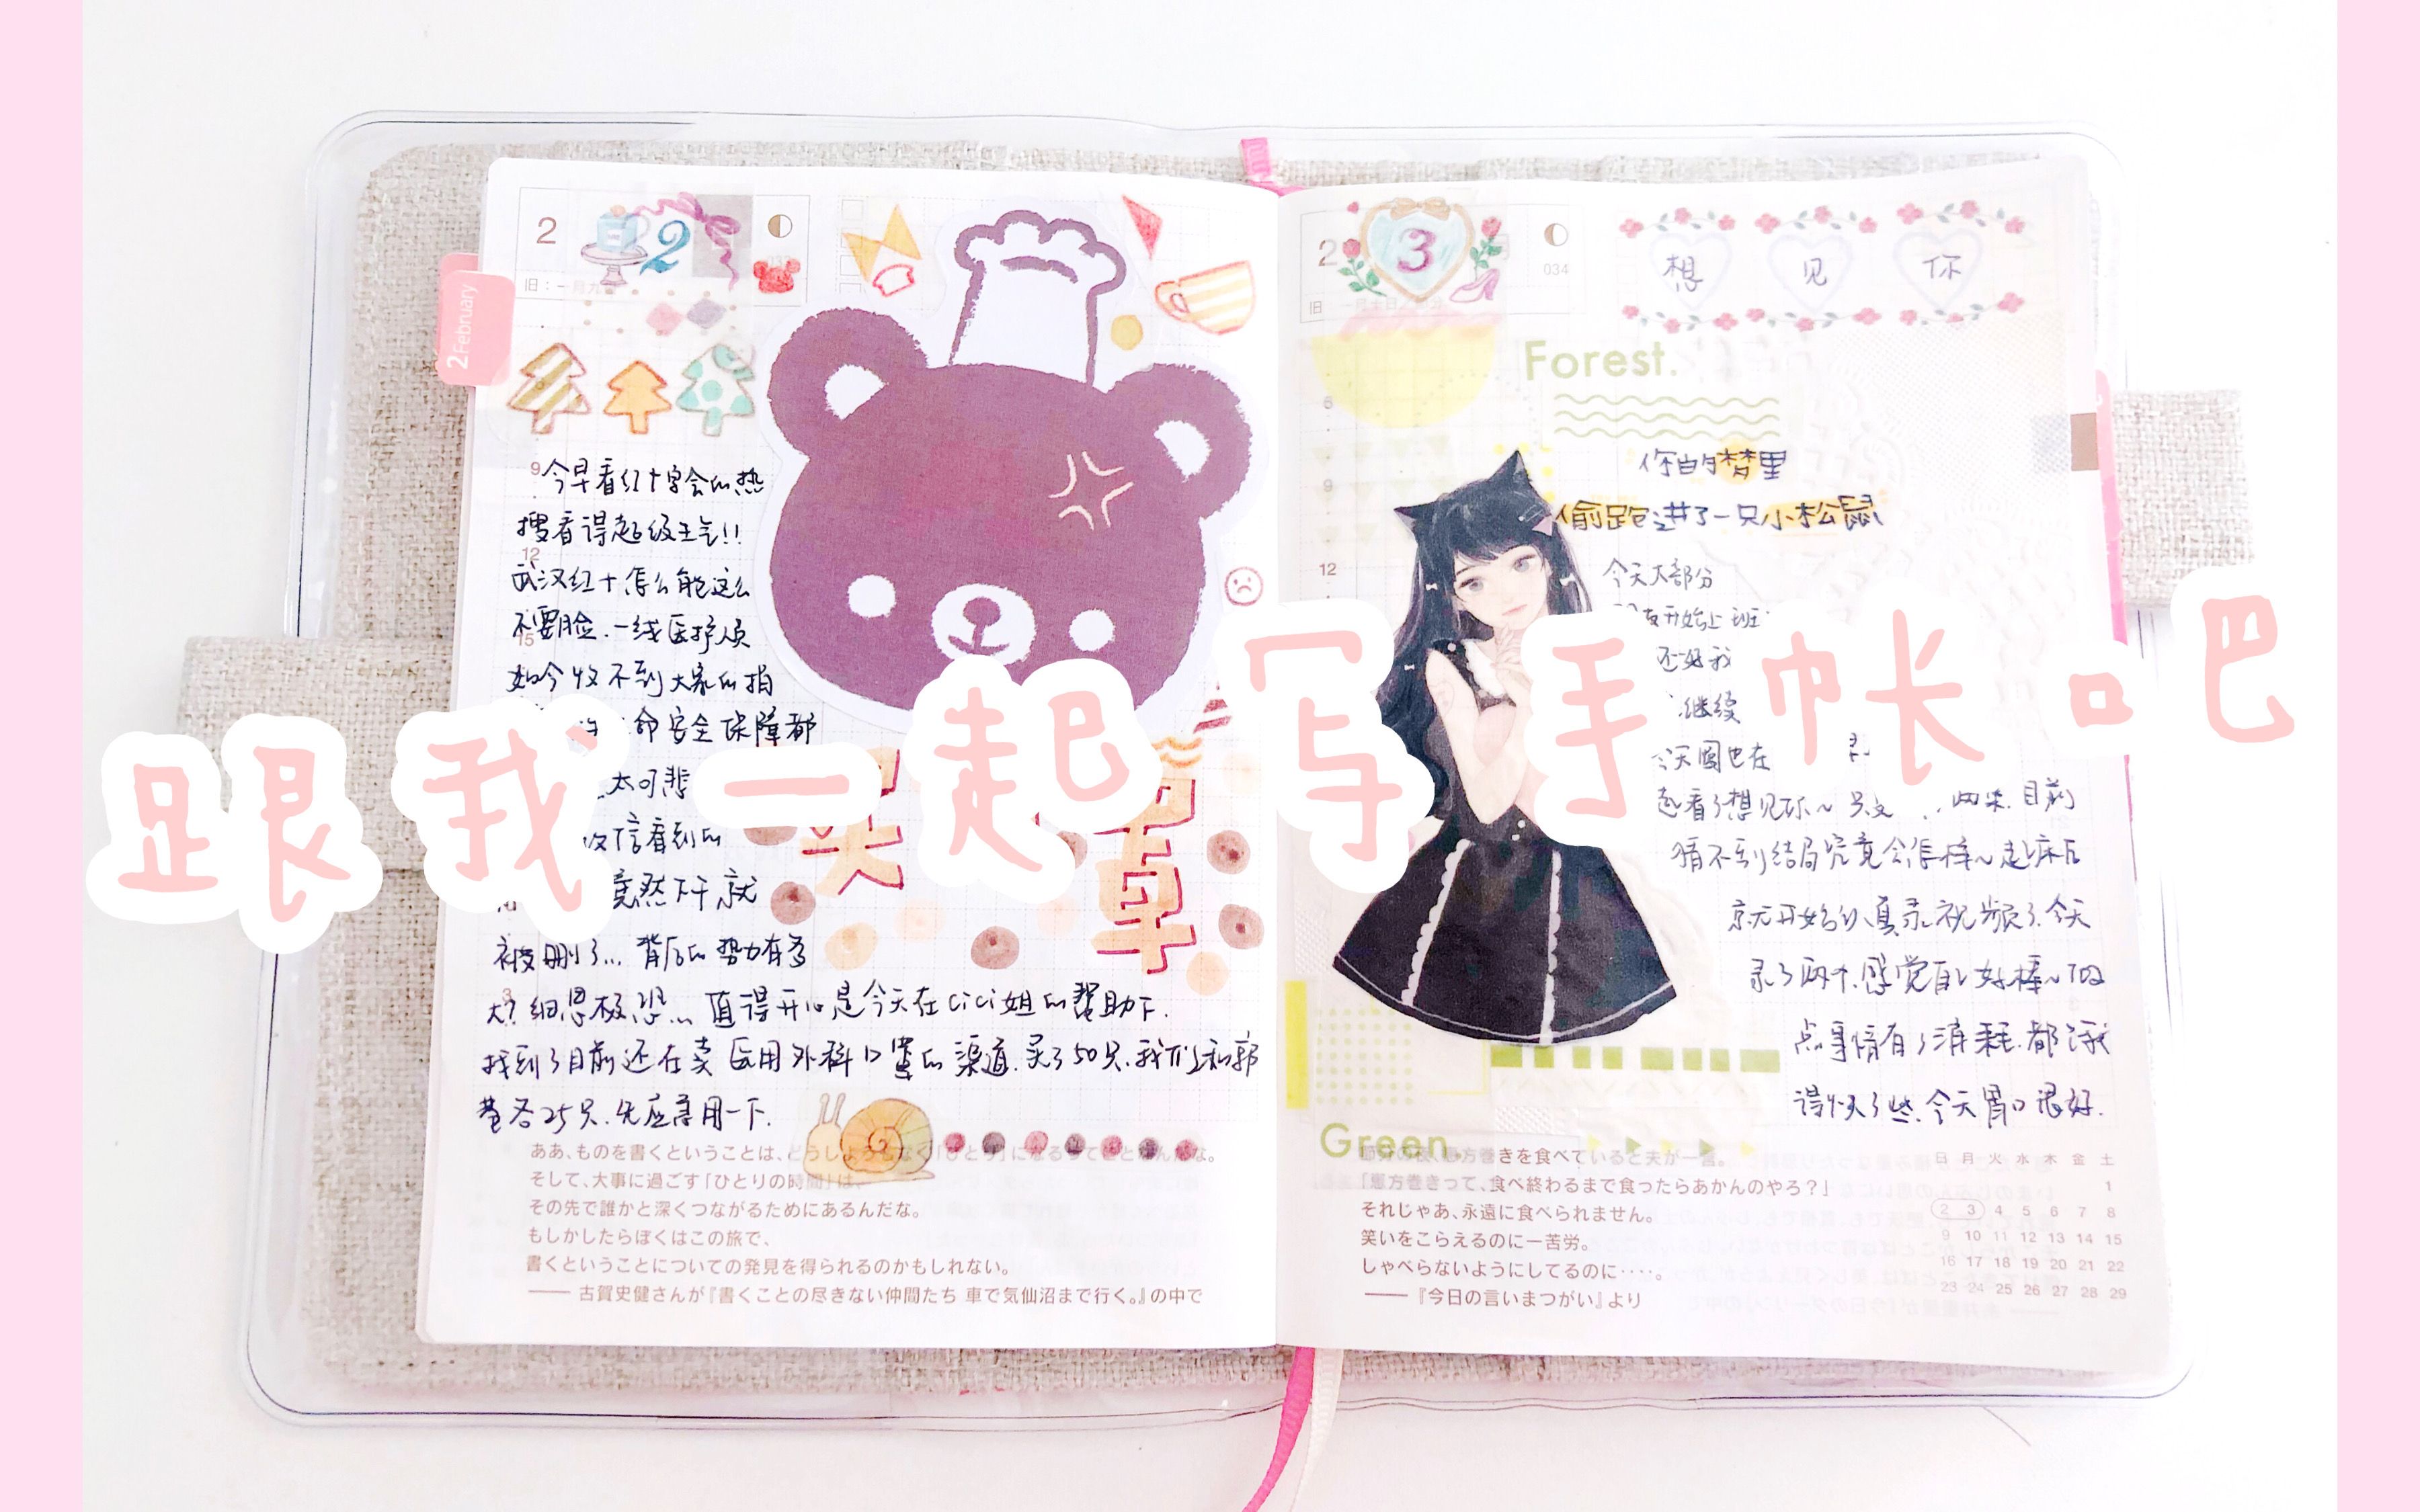 跟我一起写手帐吧
2 2
旧：一月九
2 February
9 今早看红十字会的热
搜看得超级生气!!
12
武汉红十怎么能这么
不要脸.一线医护人员
15
如今收不到大家的捐
命安全保障都
太可悲
微信看到的
竟然下午就
被删了... 背后的势力有多
大? 细思极恐... 值得开心是今天在cici姐的帮助下.
找到了目前还在卖医用外科口罩的渠道.买了50只.我们和郭
各25只.先应急用一下.
ああ、ものを書くということは、どうしようもなく「ひとり」になるってことなんだな。
そして、大事に過ごす「ひとりの時間」は、
その先で誰かと深くつながるためにあるんだな。
もしかしたらぼくはこの旅で、
書くということについての発見を得られるのかもしれない。
—— 古賀史健さんが『書くことの尽きない仲間たち 車で気仙沼まで行く。』の中で
2 3
034
旧
想 见 你
Forest.
6
9
12
你的梦里
偷跑进了一只小松鼠
今天大部分
开始上班
还好我
继续
今天圈也在
起看了想见你~ 只文 两集.目前
猜不到结局究竟会怎样~起床后
就开始认真录视频了.今天
录了两个.感觉自己好棒~做
点事情有了消耗.都饿
得快了些.今天胃口很好.
Green.
節分の夜、恵方巻きを食べていると夫が一言。
「恵方巻きって、食べ終わるまで食ったらあかんのやろ？」
それじゃあ、永遠に食べられません。
笑いをこらえるのに一苦労。
しゃべらないようにしてるのに‥‥。
——『今日の言いまつがい』より
日 月 火 水 木 金 土
1
2 3 4 5 6 7 8
9 10 11 12 13 14 15
16 17 18 19 20 21 22
23 24 25 26 27 28 29